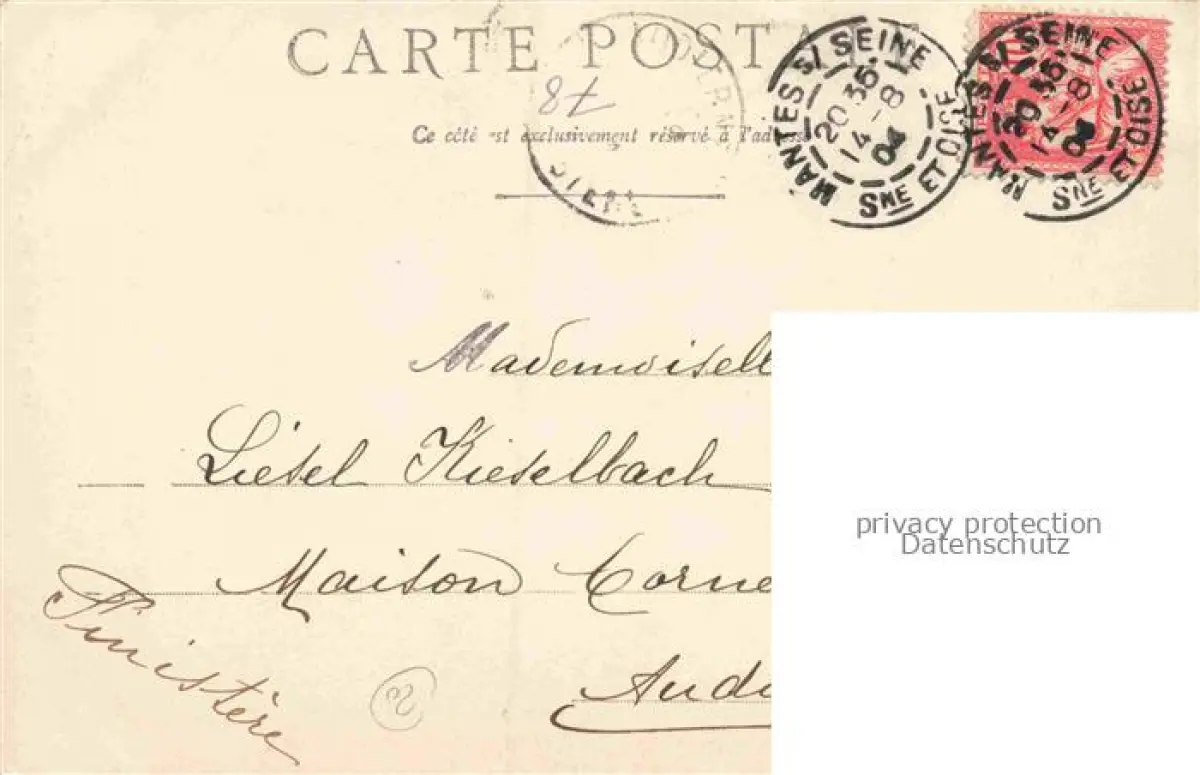 CARTE POSTA
Ce côté est exclusivement réservé à l'adresse
78
MANTES S/ SEINE
20 35
14-8
04
SNE ET OISE
MANTES S/ SEINE
20 35
14-8
04
SNE ET OISE
Mademoisell
Liesel Kieselbach
Maison Corne
Audi
Finistère
privacy protection
Datenschutz